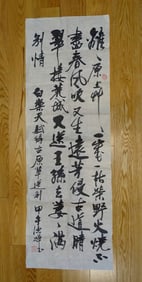 離々原上草一歲一枯榮野火燒不
盡春風吹又生遠芳侵古道晴
翠接荒城又送王孫去萋々滿
別情 白樂天 賦得古原草送別 甲午